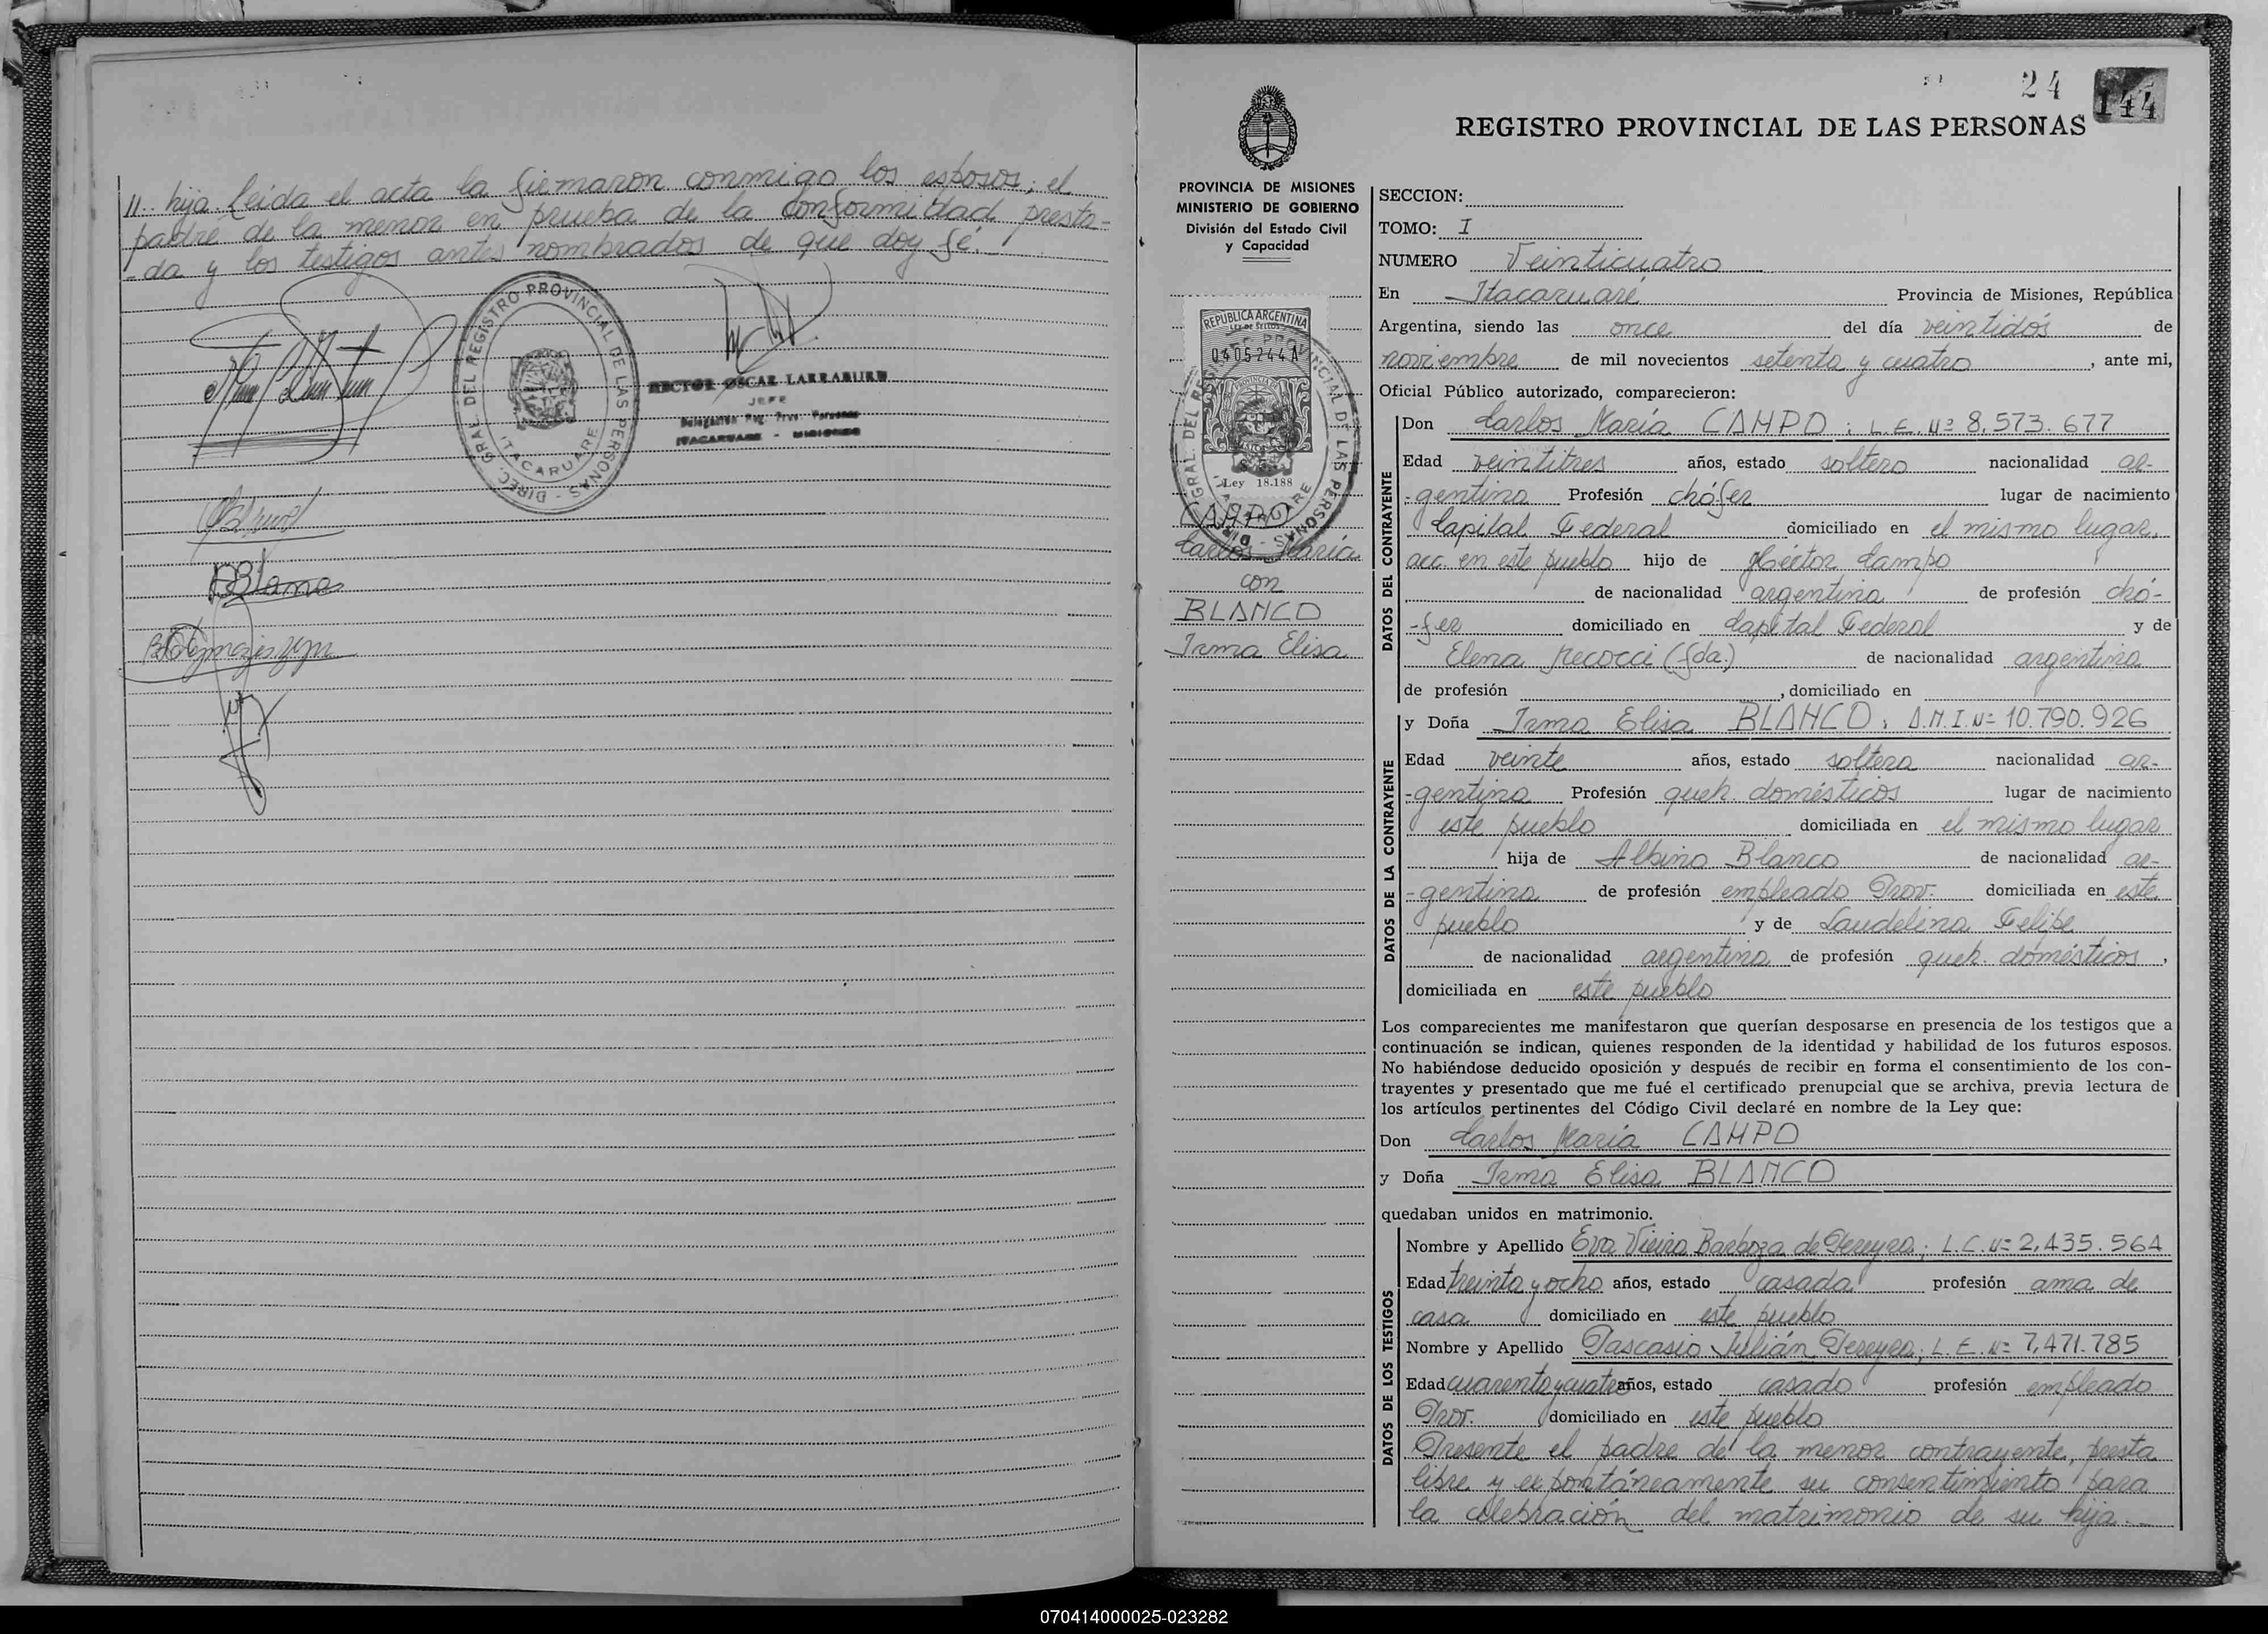 11.. hija. Leída el acta la firmaron conmigo los esposos; el
padre de la menor en prueba de la conformidad presta-
-da y los testigos antes nombrados de que doy fé.
DIREC. GRAL DEL REGISTRO PROVINCIAL DE LAS PERSONAS
ITACARUARE
HECTOR OSCAR LARRABURE
JEFE
Delegación Reg. Prov. Personas
ITACARUARE - MISIONES
24
144
REGISTRO PROVINCIAL DE LAS PERSONAS
PROVINCIA DE MISIONES
MINISTERIO DE GOBIERNO
División del Estado Civil
y Capacidad
REPUBLICA ARGENTINA
LEY DE SELLOS
0405244A
Ley 18.188
CAMPO
Carlos María
con
BLANCO
Irma Elisa
SECCION:
TOMO: I
NUMERO Veinticuatro
En Itacaruaré Provincia de Misiones, República
Argentina, siendo las once del día veintidós de
noviembre de mil novecientos setenta y cuatro, ante mi,
Oficial Público autorizado, comparecieron:
DATOS DEL CONTRAYENTE
Don Carlos María CAMPO; L.E. Nº 8.573.677
Edad veintitres años, estado soltero nacionalidad ar-
-gentina Profesión chófer lugar de nacimiento
Capital Federal domiciliado en el mismo lugar,
acc. en este pueblo hijo de Héctor Campo
de nacionalidad argentina de profesión chó-
-fer domiciliado en Capital Federal y de
Elena Recocci (fda.) de nacionalidad argentina
de profesión , domiciliado en
DATOS DE LA CONTRAYENTE
y Doña Irma Elisa BLANCO, D.N.I. Nº 10.790.926
Edad veinte años, estado soltera nacionalidad ar-
-gentina Profesión queh. domésticos lugar de nacimiento
este pueblo domiciliada en el mismo lugar
hija de Albino Blanco de nacionalidad ar-
-gentina de profesión empleado Prov. domiciliada en este
pueblo y de Laudelina Felipe
de nacionalidad argentina de profesión queh. domésticos,
domiciliada en este pueblo
Los comparecientes me manifestaron que querían desposarse en presencia de los testigos que a
continuación se indican, quienes responden de la identidad y habilidad de los futuros esposos.
No habiéndose deducido oposición y después de recibir en forma el consentimiento de los con-
trayentes y presentado que me fué el certificado prenupcial que se archiva, previa lectura de
los artículos pertinentes del Código Civil declaré en nombre de la Ley que:
Don Carlos María CAMPO
y Doña Irma Elisa BLANCO
quedaban unidos en matrimonio.
DATOS DE LOS TESTIGOS
Nombre y Apellido Eva Vieira Barboza de Pereyra; L.C. Nº 2.435.564
Edad treinta y ocho años, estado casada profesión ama de
casa domiciliado en este pueblo
Nombre y Apellido Pascasio Julián Pereyra; L.E. Nº 7.471.785
Edad cuarenta y cuatro años, estado casado profesión empleado
Prov. domiciliado en este pueblo
Presente el padre de la menor contrayente, presta
libre y expontáneamente su consentimiento para
la celebración del matrimonio de su hija.-
070414000025-023282